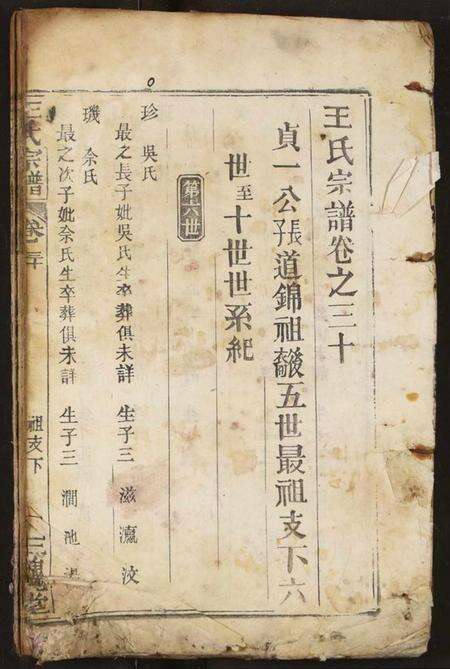 王氏宗譜卷之三十
貞一公張道錦祖裔後五世最祖支下六
世至十世世系紀
第六世
珍 吳氏
最之長子妣吳氏生卒葬俱未詳 生子三 滋 瀛 汶
璣 余氏
最之次子妣余氏生卒葬俱未詳 生子三 澗 池
王氏宗譜 卷三十 祖支下 三槐堂